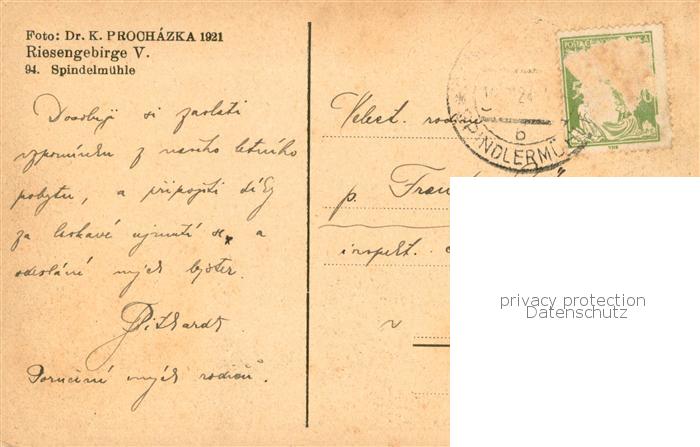 Foto: Dr. K. PROCHÁZKA 1921
Riesengebirge V.
94. Spindelmühle
Dovoluji si zaslati
vzpomínku z našeho letního
pobytu, a připojiti díky
za laskavé ujmutí se a
odeslání mých
Pithardt
Poručení mých rodičů.
Velect. rodině
p.
inspekt.
v
SPINDLERMÜHLE
b
24
POSTA
privacy protection
Datenschutz